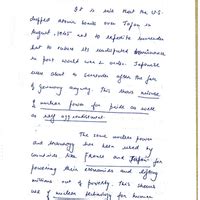 It is said that the U.S.
dropped atomic bombs over Japan in
August, 1945 not to expedite surrender
but to ensure its undisputed dominance
in post world war 2 order. Japanese
were about to surrender after the fall
of Germany anyway. This shows misuse
of nuclear power for pride as well
as self aggrandizement.
The same nuclear power
and technology has been used by
countries like France and Japan for
powering their economies and lifting
millions out of poverty. This shows
use of nuclear technology for human